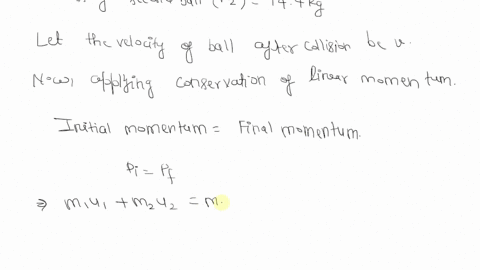 second ball (m2) = 14.4 kg
Let the velocity of ball after collision be v.
Now, applying conservation of linear momentum.
Initial momentum = Final momentum.
Pi = Pf
⇒ m₁u₁ + m₂u₂ = m